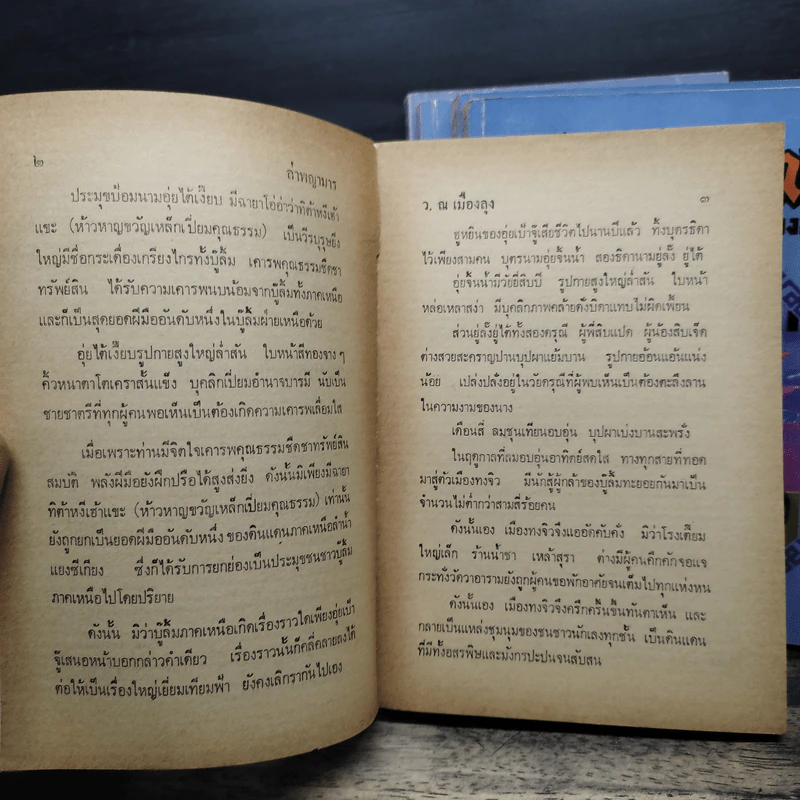 ๒
ล่าพญามาร
ประมุขป้อมนามอุ่ยไต้เงี๊ยบ มีฉายาโอ่อ่าว่าทิต้าหงีเฮ้า
แชะ (ห้าวหาญขวัญเหล็กเปี่ยมคุณธรรม) เป็นวีรบุรุษยิ่ง
ใหญ่มีชื่อกระเดื่องเกรียงไกรทั้งบู๊ลิ้ม เคารพคุณธรรมชืดชา
ทรัพย์สิน ได้รับความเคารพนบน้อมจากบู๊ลิ้มทั้งภาคเหนือ
และก็เป็นสุดยอดฝีมืออันดับหนึ่งในบู๊ลิ้มฝ่ายเหนือด้วย
อุ่ยไต้เงี๊ยบรูปกายสูงใหญ่ล่ำสัน ใบหน้าสีทองจาง ๆ
คิ้วหนาตาโตเคราสั้นแข็ง บุคลิกเปี่ยมอำนาจบารมี นับเป็น
ชายชาตรีที่ทุกผู้คนพอเห็นเป็นต้องเกิดความเคารพเลื่อมใส
เมื่อเพราะท่านมีจิตใจเคารพคุณธรรมชืดชาทรัพย์สิน
สมบัติ พลังฝีมือยังฝึกปรือได้สูงส่งยิ่ง ดังนั้นมิเพียงมีฉายา
ทิต้าหงีเฮ้าแชะ (ห้าวหาญขวัญเหล็กเปี่ยมคุณธรรม) เท่านั้น
ยังถูกยกเป็นยอดฝีมืออันดับหนึ่ง ของดินแดนภาคเหนือลำน้ำ
แยงซีเกียง ซึ่งก็ได้รับการยกย่องเป็นประมุขชนชาวบู๊ลิ้ม
ภาคเหนือไปโดยปริยาย
ดังนั้น มิว่าบู๊ลิ้มภาคเหนือเกิดเรื่องราวใดเพียงอุ่ยเบ้า
จู๊เสนอหน้าบอกกล่าวคำเดียว เรื่องราวนั้นก็คลี่คลายลงได้
ต่อให้เป็นเรื่องใหญ่เยี่ยมเทียมฟ้า ยังคงเลิกรากันไปเอง
ว. ณ เมืองลุง
๓
ฮูหยินของอุ่ยเบ้าจู๊เสียชีวิตไปนานปีแล้ว ทิ้งบุตรธิดา
ไว้เพียงสามคน บุตรนามอุ่ยจิ้นน้ำ สองธิดานามยู่ลั้ง ยู่ไต้
อุ่ยจิ้นน้ำมีวัยยี่สิบปี รูปกายสูงใหญ่ล่ำสัน ใบหน้า
หล่อเหลาสง่า มีบุคลิกภาพคล้ายดั่งบิดาแทบไม่ผิดเพี้ยน
ส่วนยู่ลั้งยู่ไต้ทั้งสองดรุณี ผู้พี่สิบแปด ผู้น้องสิบเจ็ด
ต่างสวยสะคราญปานบุปผาแย้มบาน รูปกายอ้อนแอ้นแน่ง
น้อย เปล่งปลั่งอยู่ในวัยดรุณีที่ผู้พบเห็นเป็นต้องตะลึงลาน
ในความงามของนาง
เดือนสี่ ลมชุนเทียนอบอุ่น บุปผาเบ่งบานสะพรั่ง
ในฤดูกาลที่ลมอบอุ่นอาทิตย์สดใส ทางทุกสายที่ทอด
มาสู่ตัวเมืองทงจิว มีนักสู้ผู้กล้าของบู๊ลิ้มทะยอยกันมาเป็น
จำนวนไม่ต่ำกว่าสามสี่ร้อยคน
ดังนั้นเอง เมืองทงจิวจึงแออัดคับคั่ง มิว่าโรงเตี๊ยม
ใหญ่เล็ก ร้านน้ำชา เหล้าสุรา ต่างมีผู้คนคึกคักจอแจ
กระทั่งวัดวาอารามยังถูกผู้คนขอพักอาศัยจนเต็มไปทุกแห่งหน
ดังนั้นเอง เมืองทงจิวจึงครึกครื้นขึ้นทันตาเห็น และ
กลายเป็นแหล่งชุมนุมของชนชาวนักเลงทุกชั้น เป็นดินแดน
ที่มีทั้งอสรพิษและมังกรปะปนจนสับสน